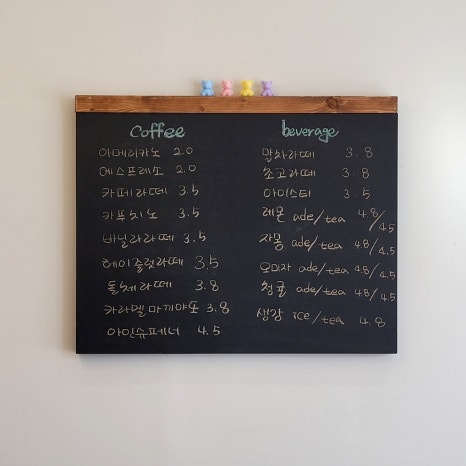 Coffee
아메리카노 2.0
에스프레소 2.0
카페라떼 3.5
카푸치노 3.5
바닐라라떼 3.5
헤이즐럿라떼 3.5
돌체라떼 3.8
카라멜마끼야또 3.8
아인슈페너 4.5
beverage
말차라떼 3.8
초코라떼 3.8
아이스티 3.5
레몬 ade/tea 4.8/4.5
자몽 ade/tea 4.8/4.5
오미자 ade/tea 4.8/4.5
청귤 ade/tea 4.8/4.5
생강 ice/tea 4.8